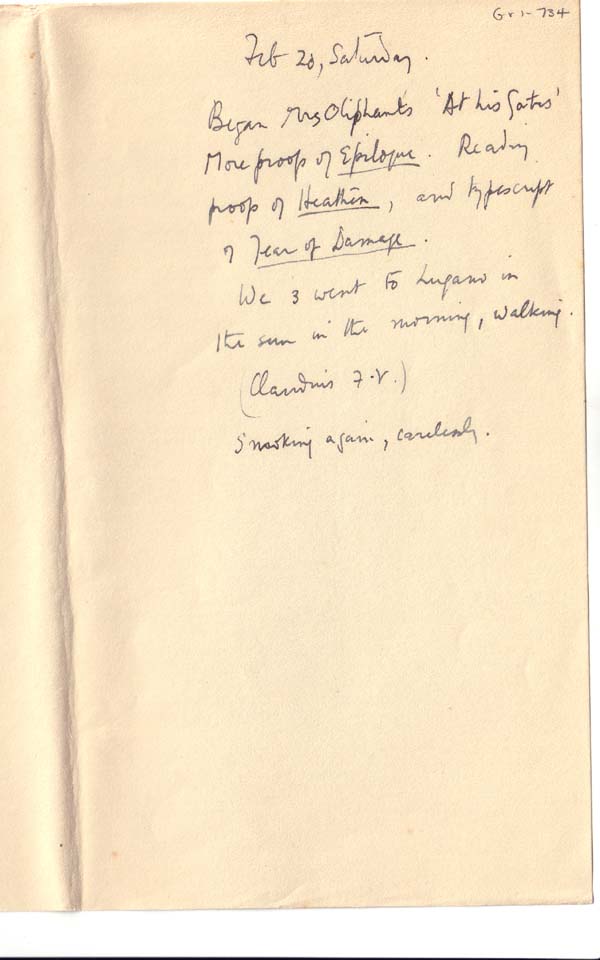 Gr1-734
Feb 20, Saturday.
Began Mrs Oliphant's 'At his Gates'
More proofs of Epilogue. Reading
proofs of Heathen, and typescript
of Fear of Damage.
We 3 went to Lugano in
the sun in the morning, walking.
(Claudius F.V.)
Smoking again, carelessly.